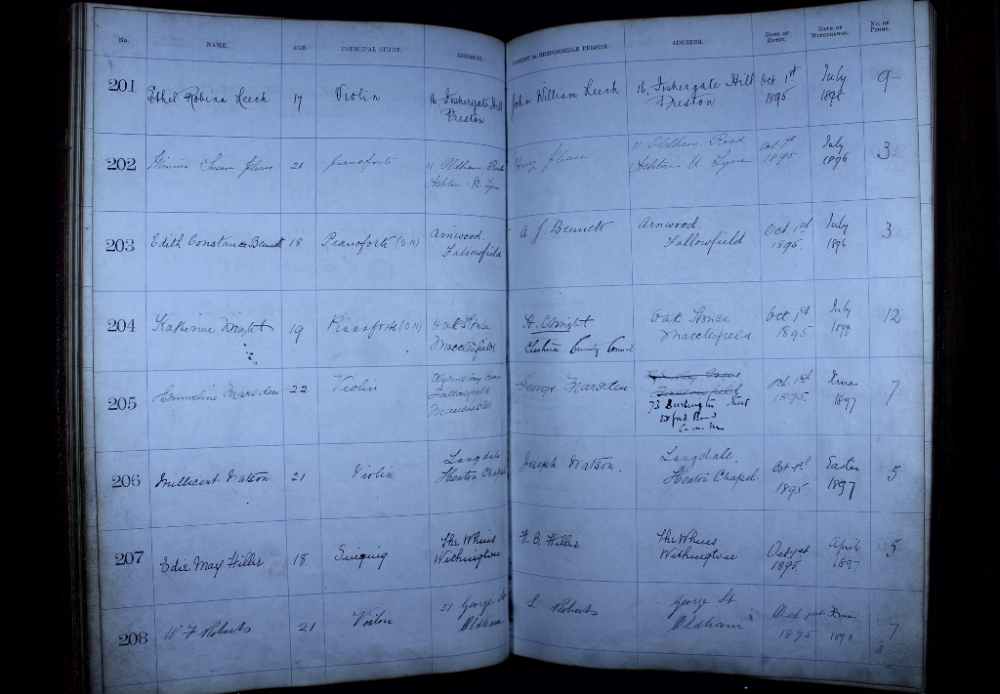 No. NAME. AGE. PRINCIPAL STUDY. ADDRESS. PARENT OR RESPONSIBLE PERSON. ADDRESS. DATE OF ENTRY. DATE OF WITHDRAWAL. NO. OF TERMS.
201 Ethel Robina Leech 17 Violin 16 Fishergate Hill John William Leech 16, Fishergate Hill Oct 1st July 9
Preston Preston 1895
202 21 Pianoforte 11 Oldham Henry 11 Oldham Road Oct 1st July 3
Ashton Ashton U Lyne 1895 1896
203 Edith Constance Bennett 18 Pianoforte Arnwood A J Bennett Arnwood, Oct 1st July 3
Fallowfield Fallowfield 1895 1896
204 Katherine 19 Pianoforte Oak House Oak House Oct 1st July 12
Macclesfield Cheshire County Council Macclesfield 1895
205 Emmeline Marsden 22 Violin George Marsden Oct 1st Xmas 7
Fallowfield Fallowfield 1895 1897
Manchester 73
206 Millicent Watson 21 Violin Langdale Joseph Watson. Langdale, Oct 1st Easter 5
Heaton Chapel Heaton Chapel 1895 1897
207 Edie May Hillis 18 Singing The Whins H. B. Hillis The Whins Oct 1st April 5
Withington Withington 1895 1897
208 W F Roberts 21 Violin 51 George St L Roberts George St Oct 1st Xmas 7
Oldham Oldham 1895